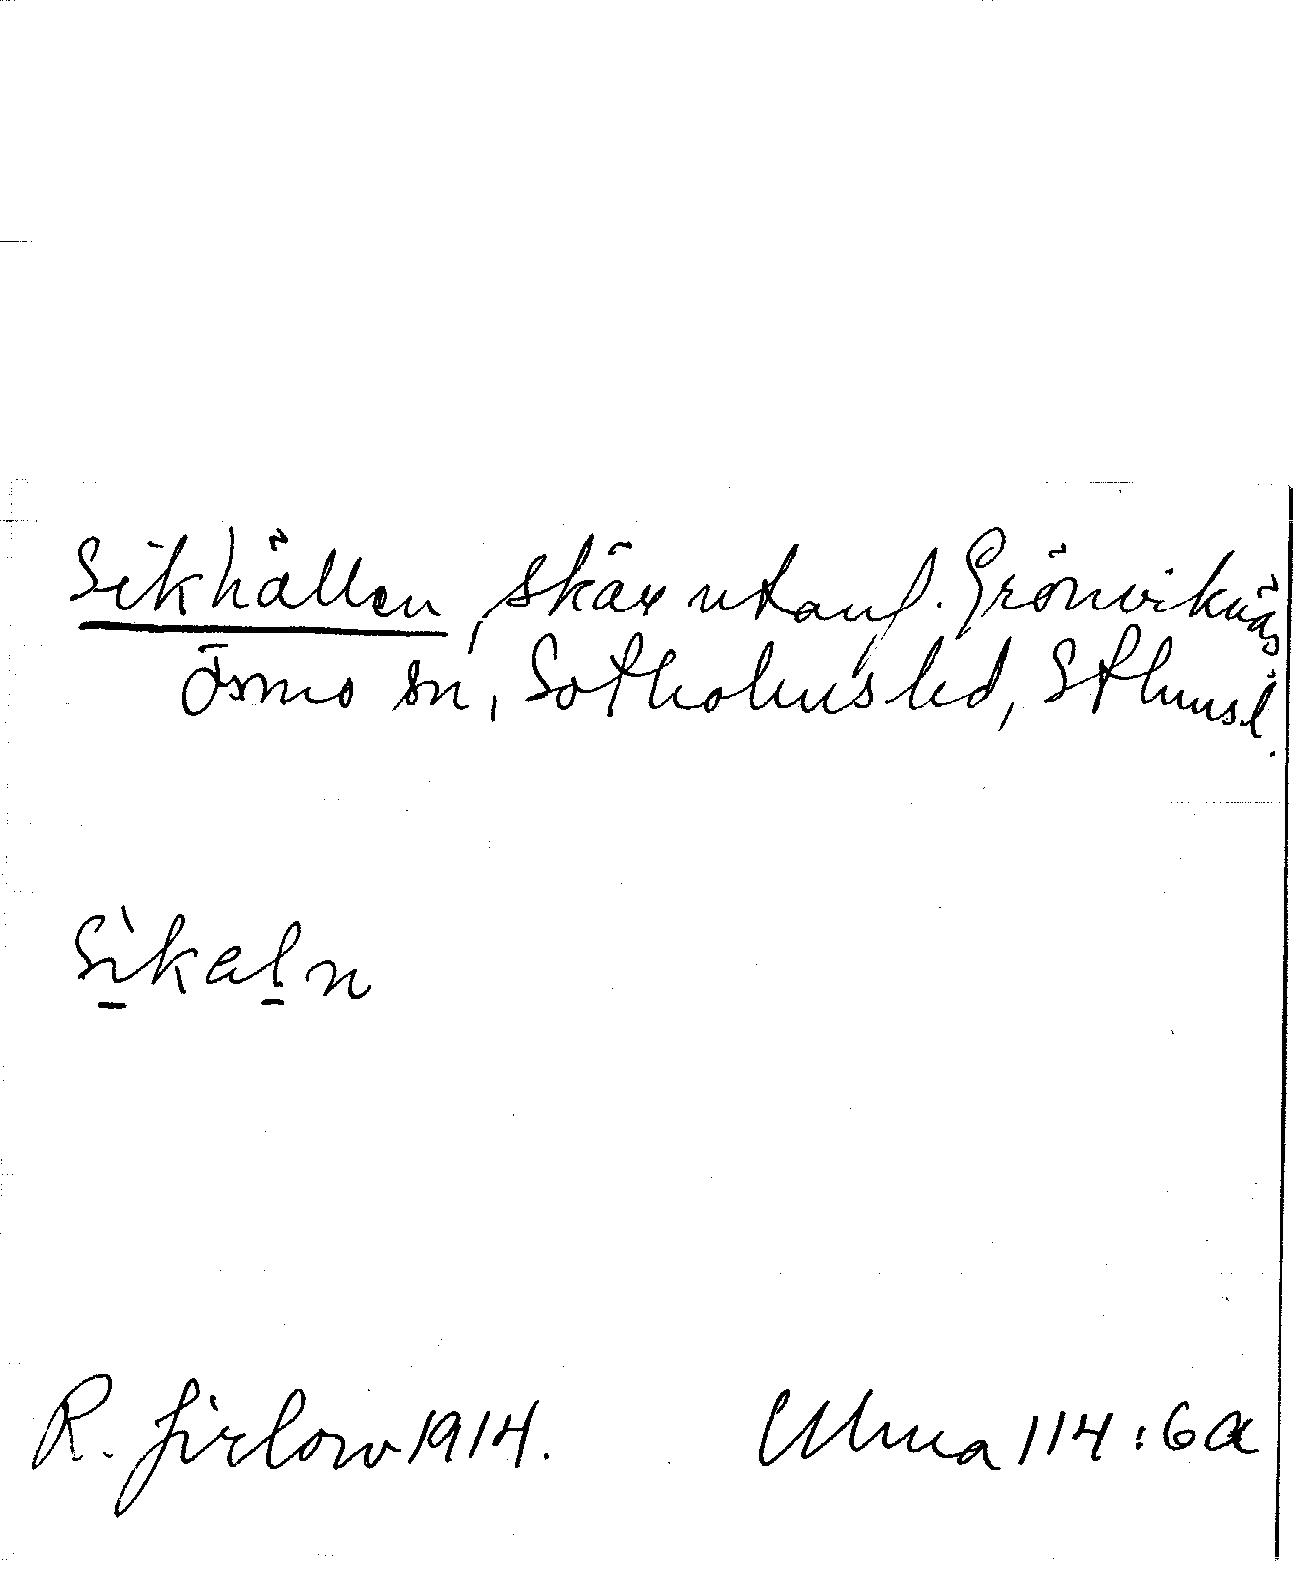 Sikhällen, skär utanf. Grönviknäs.
Ösmo sn, Sotholms hd, Sthmsl.
Sìkaln
R. Jirlow 1914. Ulma 114:6a